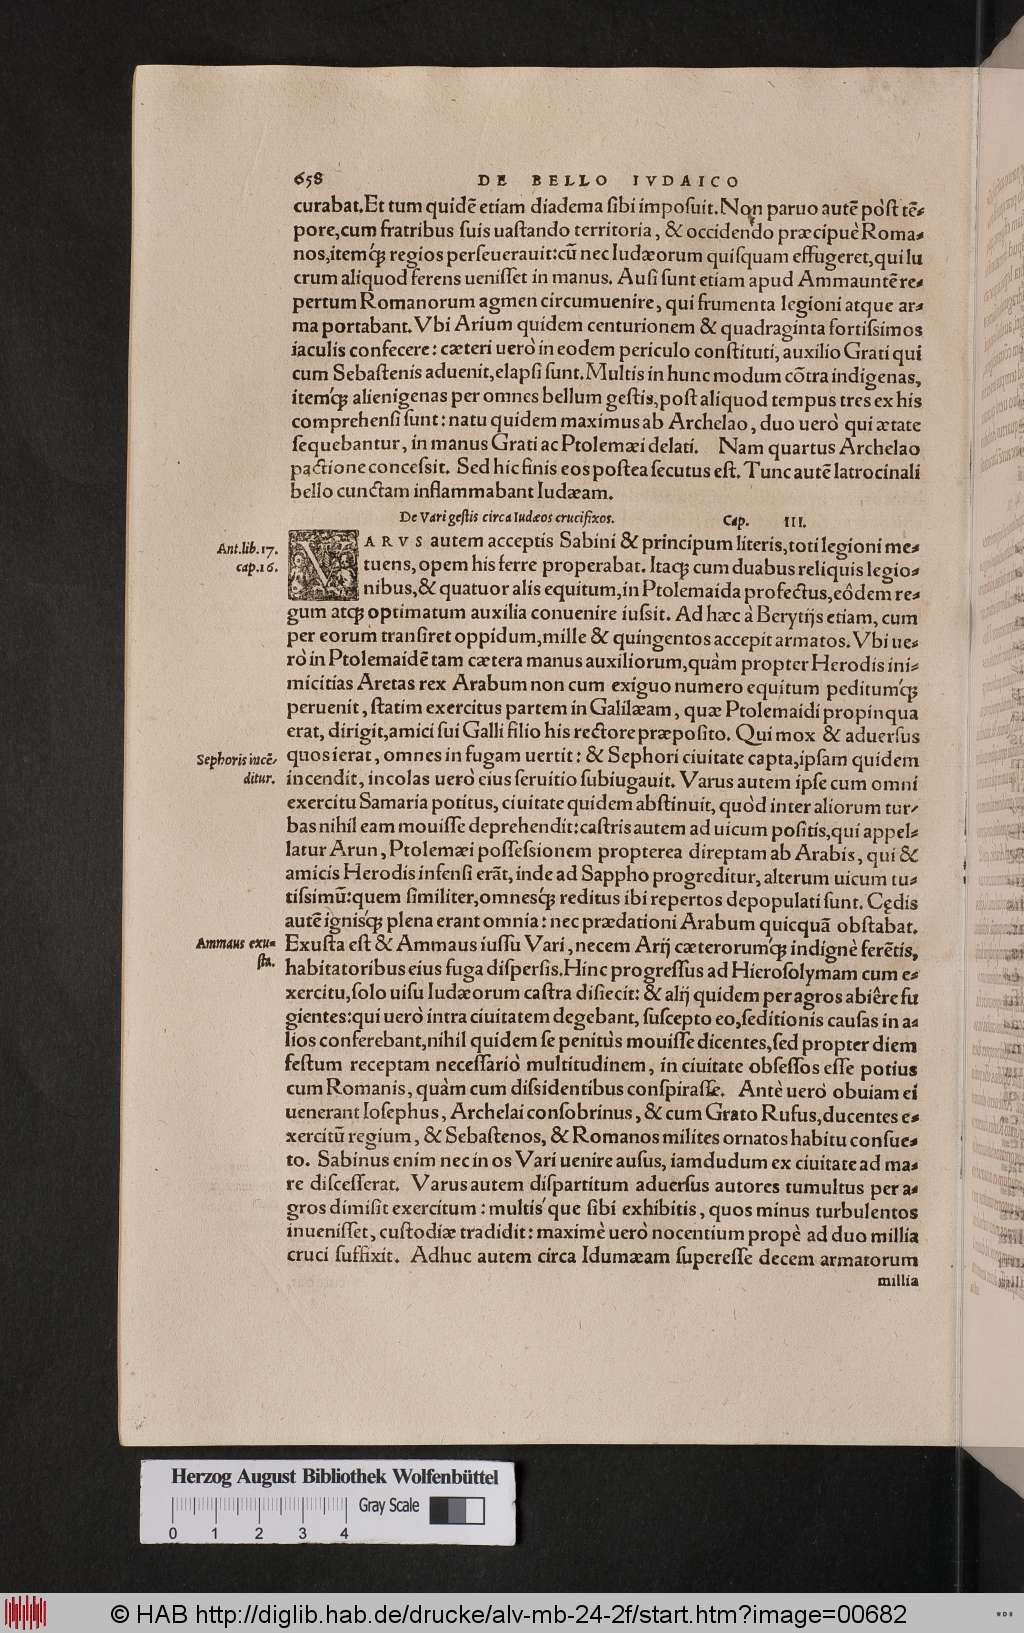 658 DE BELLO IVDAICO
curabat. Et tum quidē etiam diadema ſibi impoſuit. Non paruo autē pòſt tē-
pore, cum fratribus ſuis uaſtando territoria, & occidendo præcipuè Roma-
nos, itemq́; regios perſeuerauit: cū nec Iudæorum quiſquam effugeret, qui lu
crum aliquod ferens ueniſſet in manus. Auſi ſunt etiam apud Ammauntē re-
pertum Romanorum agmen circumuenire, qui frumenta legioni atque ar-
ma portabant. Vbi Arium quidem centurionem & quadraginta fortiſsimos
iaculis confecere: cæteri uerò in eodem periculo conſtituti, auxilio Grati qui
cum Sebaſtenis aduenit, elapſi ſunt. Multis in hunc modum cōtra indigenas,
itemq́; alienigenas per omnes bellum geſtis, poſt aliquod tempus tres ex his
comprehenſi ſunt: natu quidem maximus ab Archelao, duo uerò qui ætate
ſequebantur, in manus Grati ac Ptolemæi delati. Nam quartus Archelao
pactione conceſsit. Sed hic finis eos poſtea ſecutus eſt. Tunc autē latrocinali
bello cunctam inflammabant Iudæam.
De Vari geſtis circa Iudæos crucifixos. Cap. III.
Ant. lib. 17.
cap. 16.
VARVS autem acceptis Sabini & principum literis, toti legioni me-
tuens, opem his ferre properabat. Itaq; cum duabus reliquis legio-
nibus, & quatuor alis equitum, in Ptolemaida profectus, eôdem re-
gum atq; optimatum auxilia conuenire iuſsit. Ad hæc à Berytijs etiam, cum
per eorum tranſiret oppidum, mille & quingentos accepit armatos. Vbi ue-
rò in Ptolemaidē tam cætera manus auxiliorum, quàm propter Herodis ini-
micitias Aretas rex Arabum non cum exiguo numero equitum peditumq́;
peruenit, ſtatim exercitus partem in Galilæam, quæ Ptolemaidi propinqua
erat, dirigit, amici ſui Galli filio his rectore præpoſito. Qui mox & aduerſus
Sephoris incē-
ditur.
quos ierat, omnes in fugam uertit: & Sephori ciuitate capta, ipſam quidem
incendit, incolas uerò eius ſeruitio ſubiugauit. Varus autem ipſe cum omni
exercitu Samaria potitus, ciuitate quidem abſtinuit, quòd inter aliorum tur-
bas nihil eam mouiſſe deprehendit: caſtris autem ad uicum poſitis, qui appel-
latur Arun, Ptolemæi poſſeſsionem propterea direptam ab Arabis, qui &
amicis Herodis infenſi erāt, inde ad Sappho progreditur, alterum uicum tu-
tiſsimū: quem ſimiliter, omnesq́; reditus ibi repertos depopulati ſunt. Cędis
autē ignisq́; plena erant omnia: nec prædationi Arabum quicquā obſtabat.
Ammaus exu-
ſta.
Exuſta eſt & Ammaus iuſſu Vari, necem Arij cæterorumq́; indignè ferētis,
habitatoribus eius fuga diſperſis. Hinc progreſſus ad Hieroſolymam cum e-
xercitu, ſolo uiſu Iudæorum caſtra diſiecit: & alij quidem per agros abiêre fu
gientes: qui uerò intra ciuitatem degebant, ſuſcepto eo, ſeditionis cauſas in a-
lios conferebant, nihil quidem ſe penitùs mouiſſe dicentes, ſed propter diem
feſtum receptam neceſſariò multitudinem, in ciuitate obſeſſos eſſe potius
cum Romanis, quàm cum diſsidentibus conſpiraſſe. Antè uerò obuiam ei
uenerant Ioſephus, Archelai conſobrinus, & cum Grato Rufus, ducentes e-
xercitū regium, & Sebaſtenos, & Romanos milites ornatos habitu conſue-
to. Sabinus enim nec in os Vari uenire auſus, iamdudum ex ciuitate ad ma-
re diſceſſerat. Varus autem diſpartitum aduerſus autores tumultus per a-
gros dimiſit exercitum: multis'que ſibi exhibitis, quos minus turbulentos
inueniſſet, cuſtodiæ tradidit: maximè uerò nocentium propè ad duo millia
cruci ſuffixit. Adhuc autem circa Idumæam ſupereſſe decem armatorum
millia
Herzog August Bibliothek Wolfenbüttel
Gray Scale
0 1 2 3 4
© HAB http://diglib.hab.de/drucke/alv-mb-24-2f/start.htm?image=00682